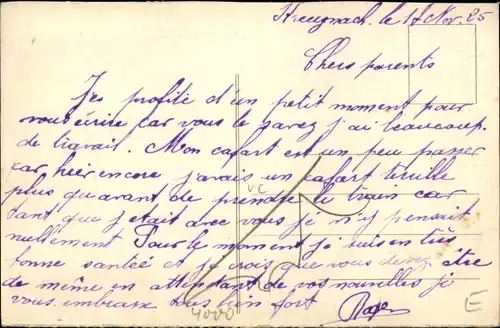 Kreuznach. le 17 Nov. 25
Chers parents
Jes profité d'un petit moment pour
vous écrire car vous le savez j'ai beaucoup.
de travail. Mon cafart est un peu passer
car hier encore j'avais un cafart terrible
plus quavant de prendre le train car
tant que j'etait avec vous je n'y pensait
nullement Pour le moment je suis en très
bonne santée et je crois que vous devez être
de même en attendant de vos nouvelles je
vous embrasse tous bien fort
VC
4000
E